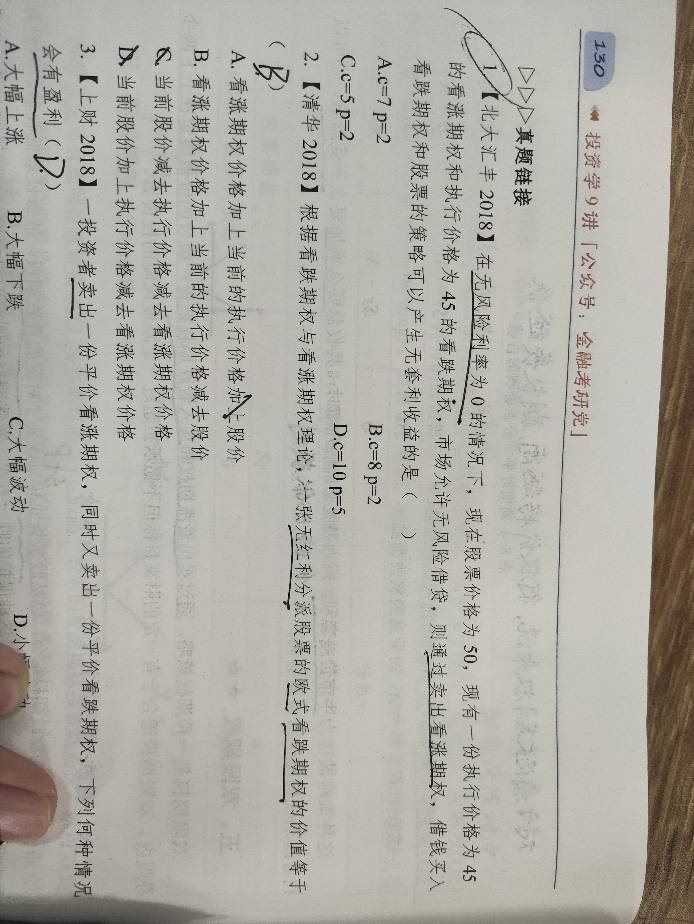 130 投资学9讲「公众号：金融考研党」
▷▷▷真题链接
1.【北大汇丰 2018】在无风险利率为 0 的情况下，现在股票价格为 50，现有一份执行价格为 45
的看涨期权和执行价格为 45 的看跌期权，市场允许无风险借贷，则通过卖出看涨期权，借钱买入
看跌期权和股票的策略可以产生无套利收益的是（ ）
A.c=7 p=2 B.c=8 p=2
C.c=5 p=2 D.c=10 p=5
2.【清华 2018】根据看跌期权与看涨期权理论，一张无红利分派股票的欧式看跌期权的价值等于
（B）
A. 看涨期权价格加上当前的执行价格加上股价
B. 看涨期权价格加上当前的执行价格减去股价
C. 当前股价减去执行价格减去看涨期权价格
D. 当前股价加上执行价格减去看涨期权价格
3.【上财 2018】一投资者卖出一份平价看涨期权，同时又卖出一份平价看跌期权，下列何种情况
会有盈利（D.）
A.大幅上涨 B.大幅下跌 C.大幅波动 D.小